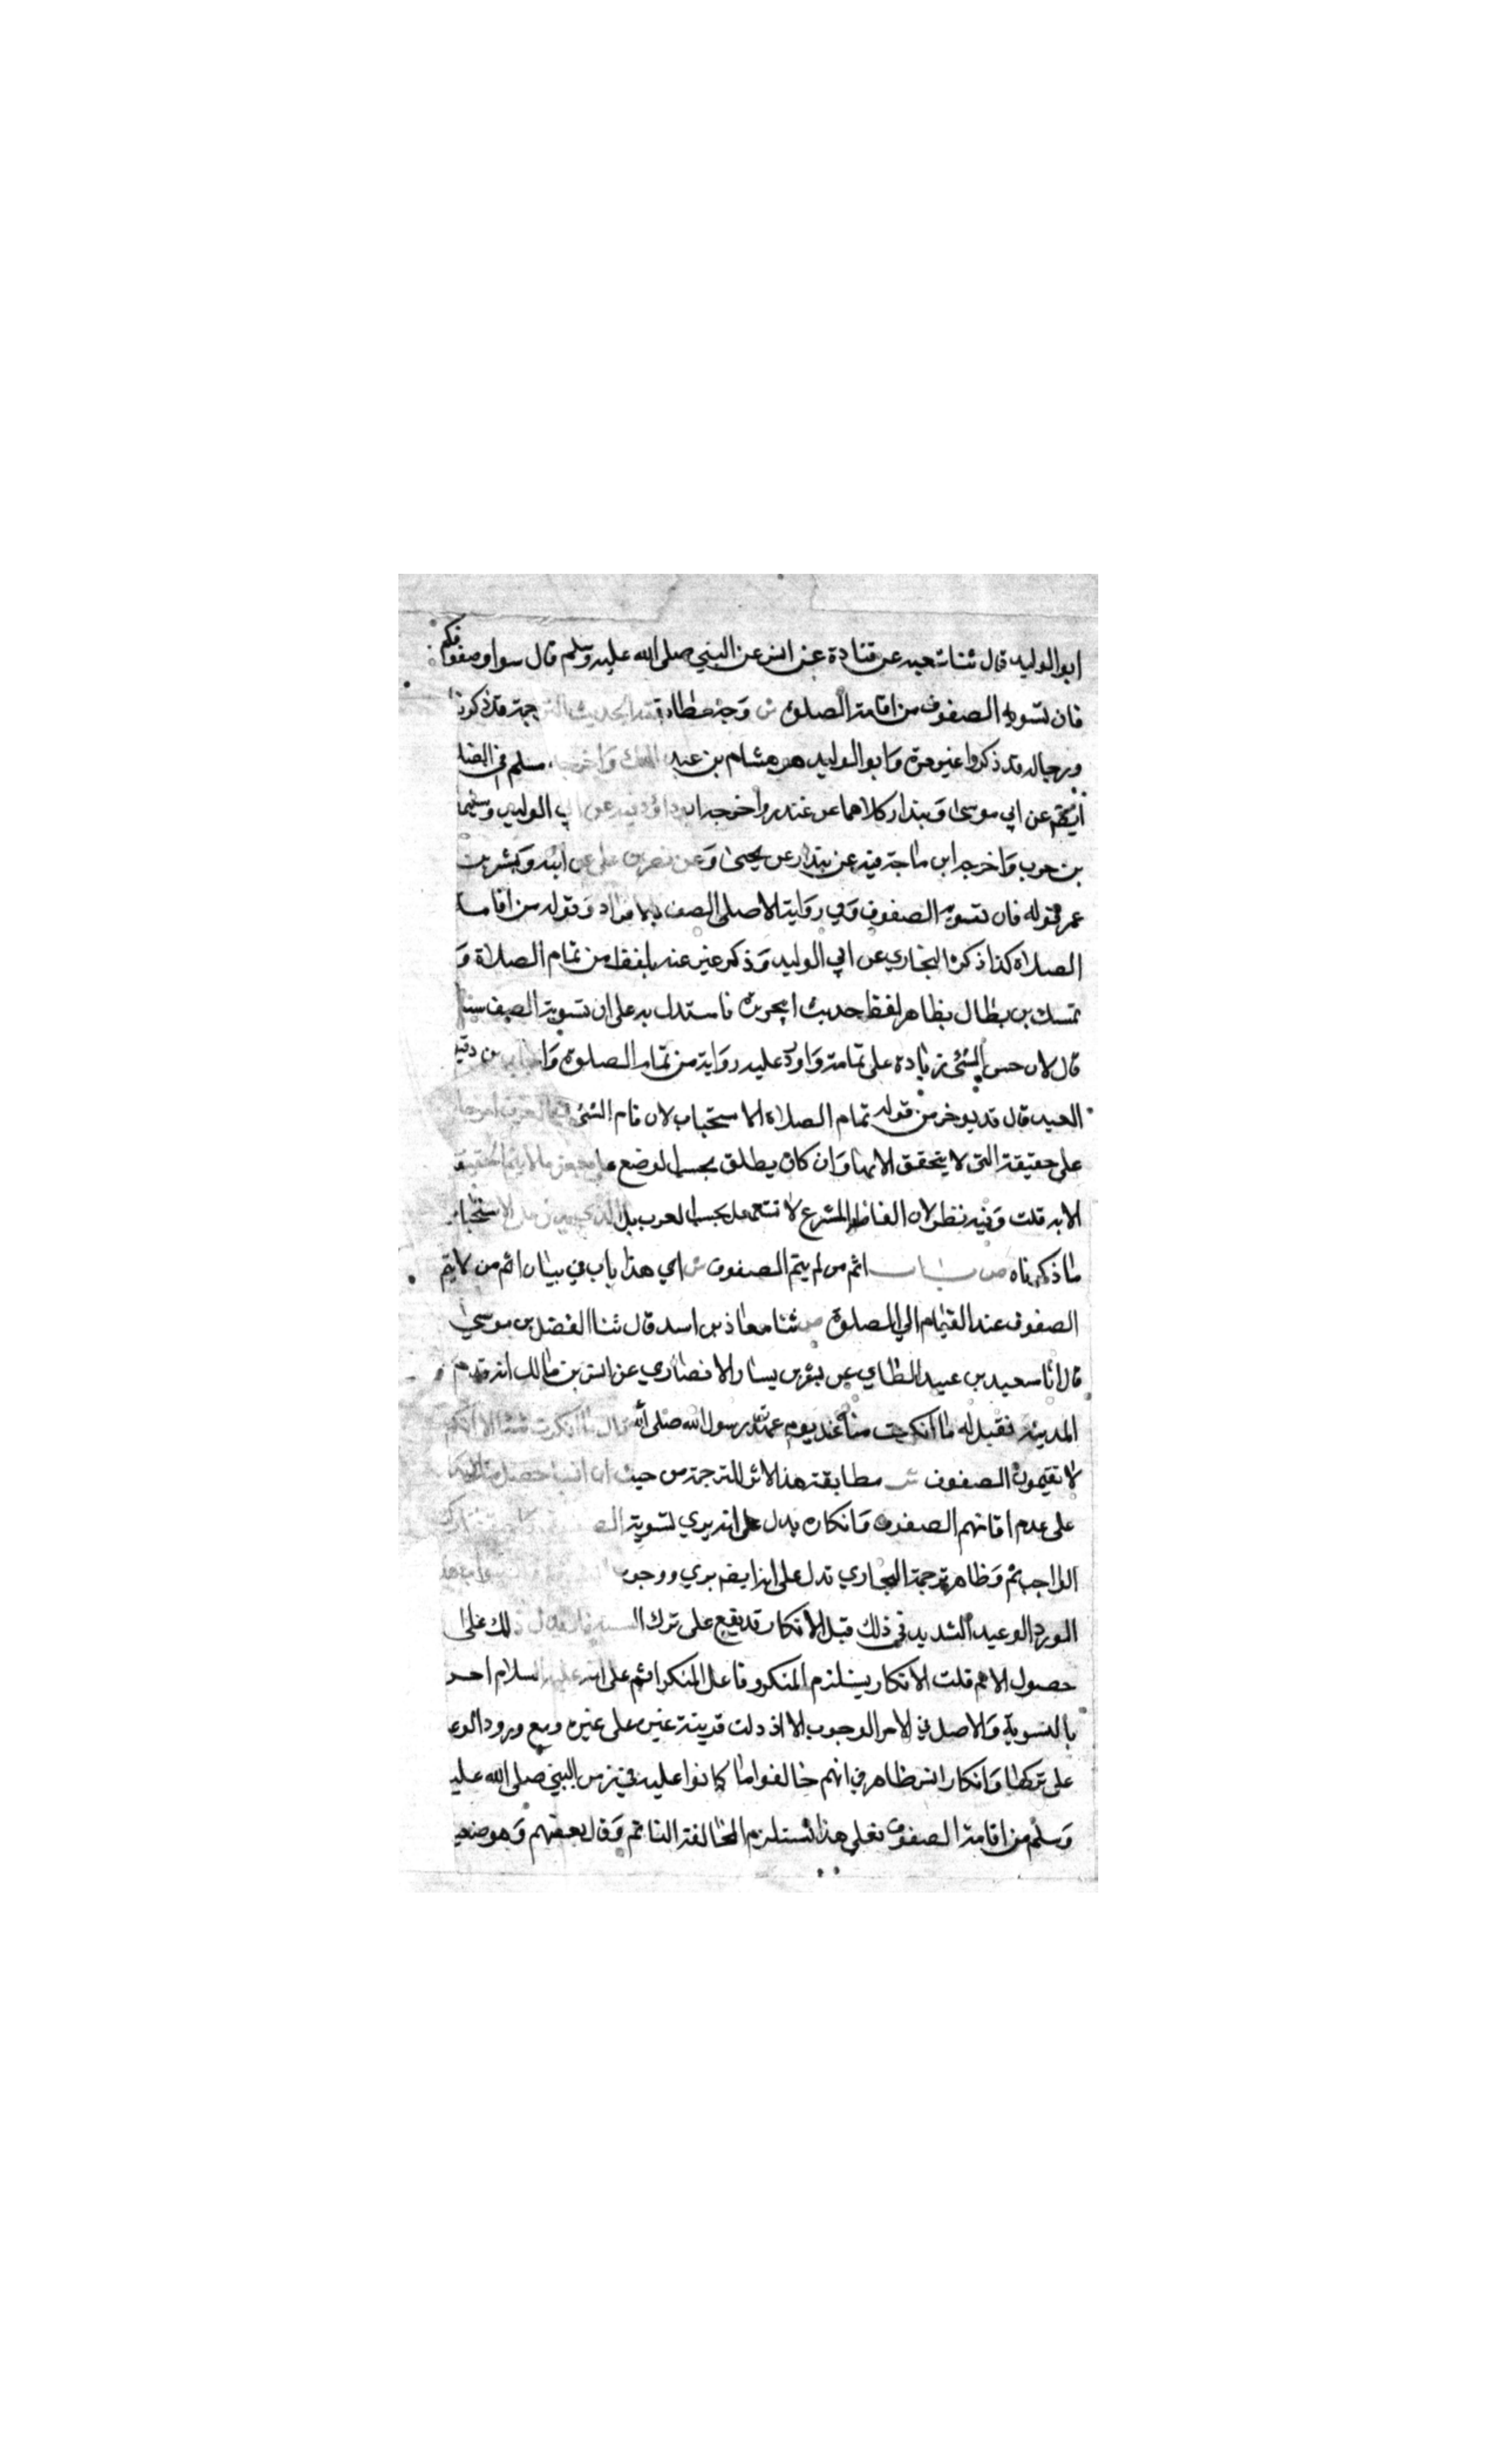 ابو الوليد قال ثنا شعبه عن قتادة عن انس عن النبي صلى الله عليه وسلم قال سووا صفوفكم
فان تسويه الصفوف من اقامة الصلوة ش وجه مطابقته الحديث الترجمة قد ذكرنا
ورجاله قد ذكروا غير مرة وابو الوليد هو هشام بن عبد الملك واخرجه مسلم في الصلا
عن ابي موسى وبندار كلاهما عن غندر واخرجه ابو داود فيه عن ابي الوليد وسليما
بن حرب واخرجه ابن ماجة فيه عن بندار عن يحيى وعن نصر بن علي عن ابيه وبشر بن
عمر قوله فان تسوية الصفوف وفي رواية الاصلي الصف بالافراد وقوله من اقامة
الصلاة كذا ذكره البخاري عن ابي الوليد وذكر غيره عنه بلفظ من تمام الصلاة و
تمسك بن بطال بظاهر لفظ حديث ابي هريرة فاستدل به على ان تسوية الصف سنة
قال لان حسن الشئ زيادة على تمامه واورد عليه رواية من تمام الصلوة واجاب بن دقيق
العيد قال قد يوخذ من قوله تمام الصلاة الاستحباب لان تمام الشئ في العرف امر خارج
على حقيقته التي لا يتحقق الا بها وان كان يطلق بحسب الوضع على بعض ما لا يتم الحقيقة
الا به قلت وفيه نظر لان الفاظ الشرع لا تستعمل بحسب العرب بل الاستحباب
ما ذكرناه ص باب اثم من لم يتم الصفوف ش اي هذا باب في بيان اثم من لا يتم
الصفوف عند القيام الي الصلوة ص ثنا معاذ بن اسد قال ثنا الفضل بن موسى
قال انا سعيد بن عبيد الطاي عن بشر بن يسار الانصاري عن انس بن مالك انه قدم
المدينة فقيل له ما انكرت منا منذ يوم عهدت رسول الله صلى الله قال ما انكرت شيئا الا انكم
لا تقيمون الصفوف ش مطابقة هذا الاثر للترجمة من حيث ان انسا حصل منه الانكار
على عدم اقامتهم الصفوف وانكاره يدل على انه يري تسوية
الواجب اثم وظاهر ترجمة البخاري تدل على انه ايضا يري ووجوب
الورد الوعيد الشديد في ذلك قبل الانكار قد يقع على ترك السنة فلا يدل ذلك على
حصول الاثم قلت الانكار يستلزم المنكر وفاعل المنكر اثم على انه عليه السلام امر
بالتسوية والاصل في الامر الوجوب الا اذ دلت قرينة غيره على غيره ومع ورود الوعيد
على تركها وانكار انس ظاهر في انهم خالفوا ما كانوا عليه في زمن النبي صلى الله عليه
وسلم من اقامة الصفوف فعلى هذا تستلزم المخالفة التاثم وقال بعضهم وهو ضعيف